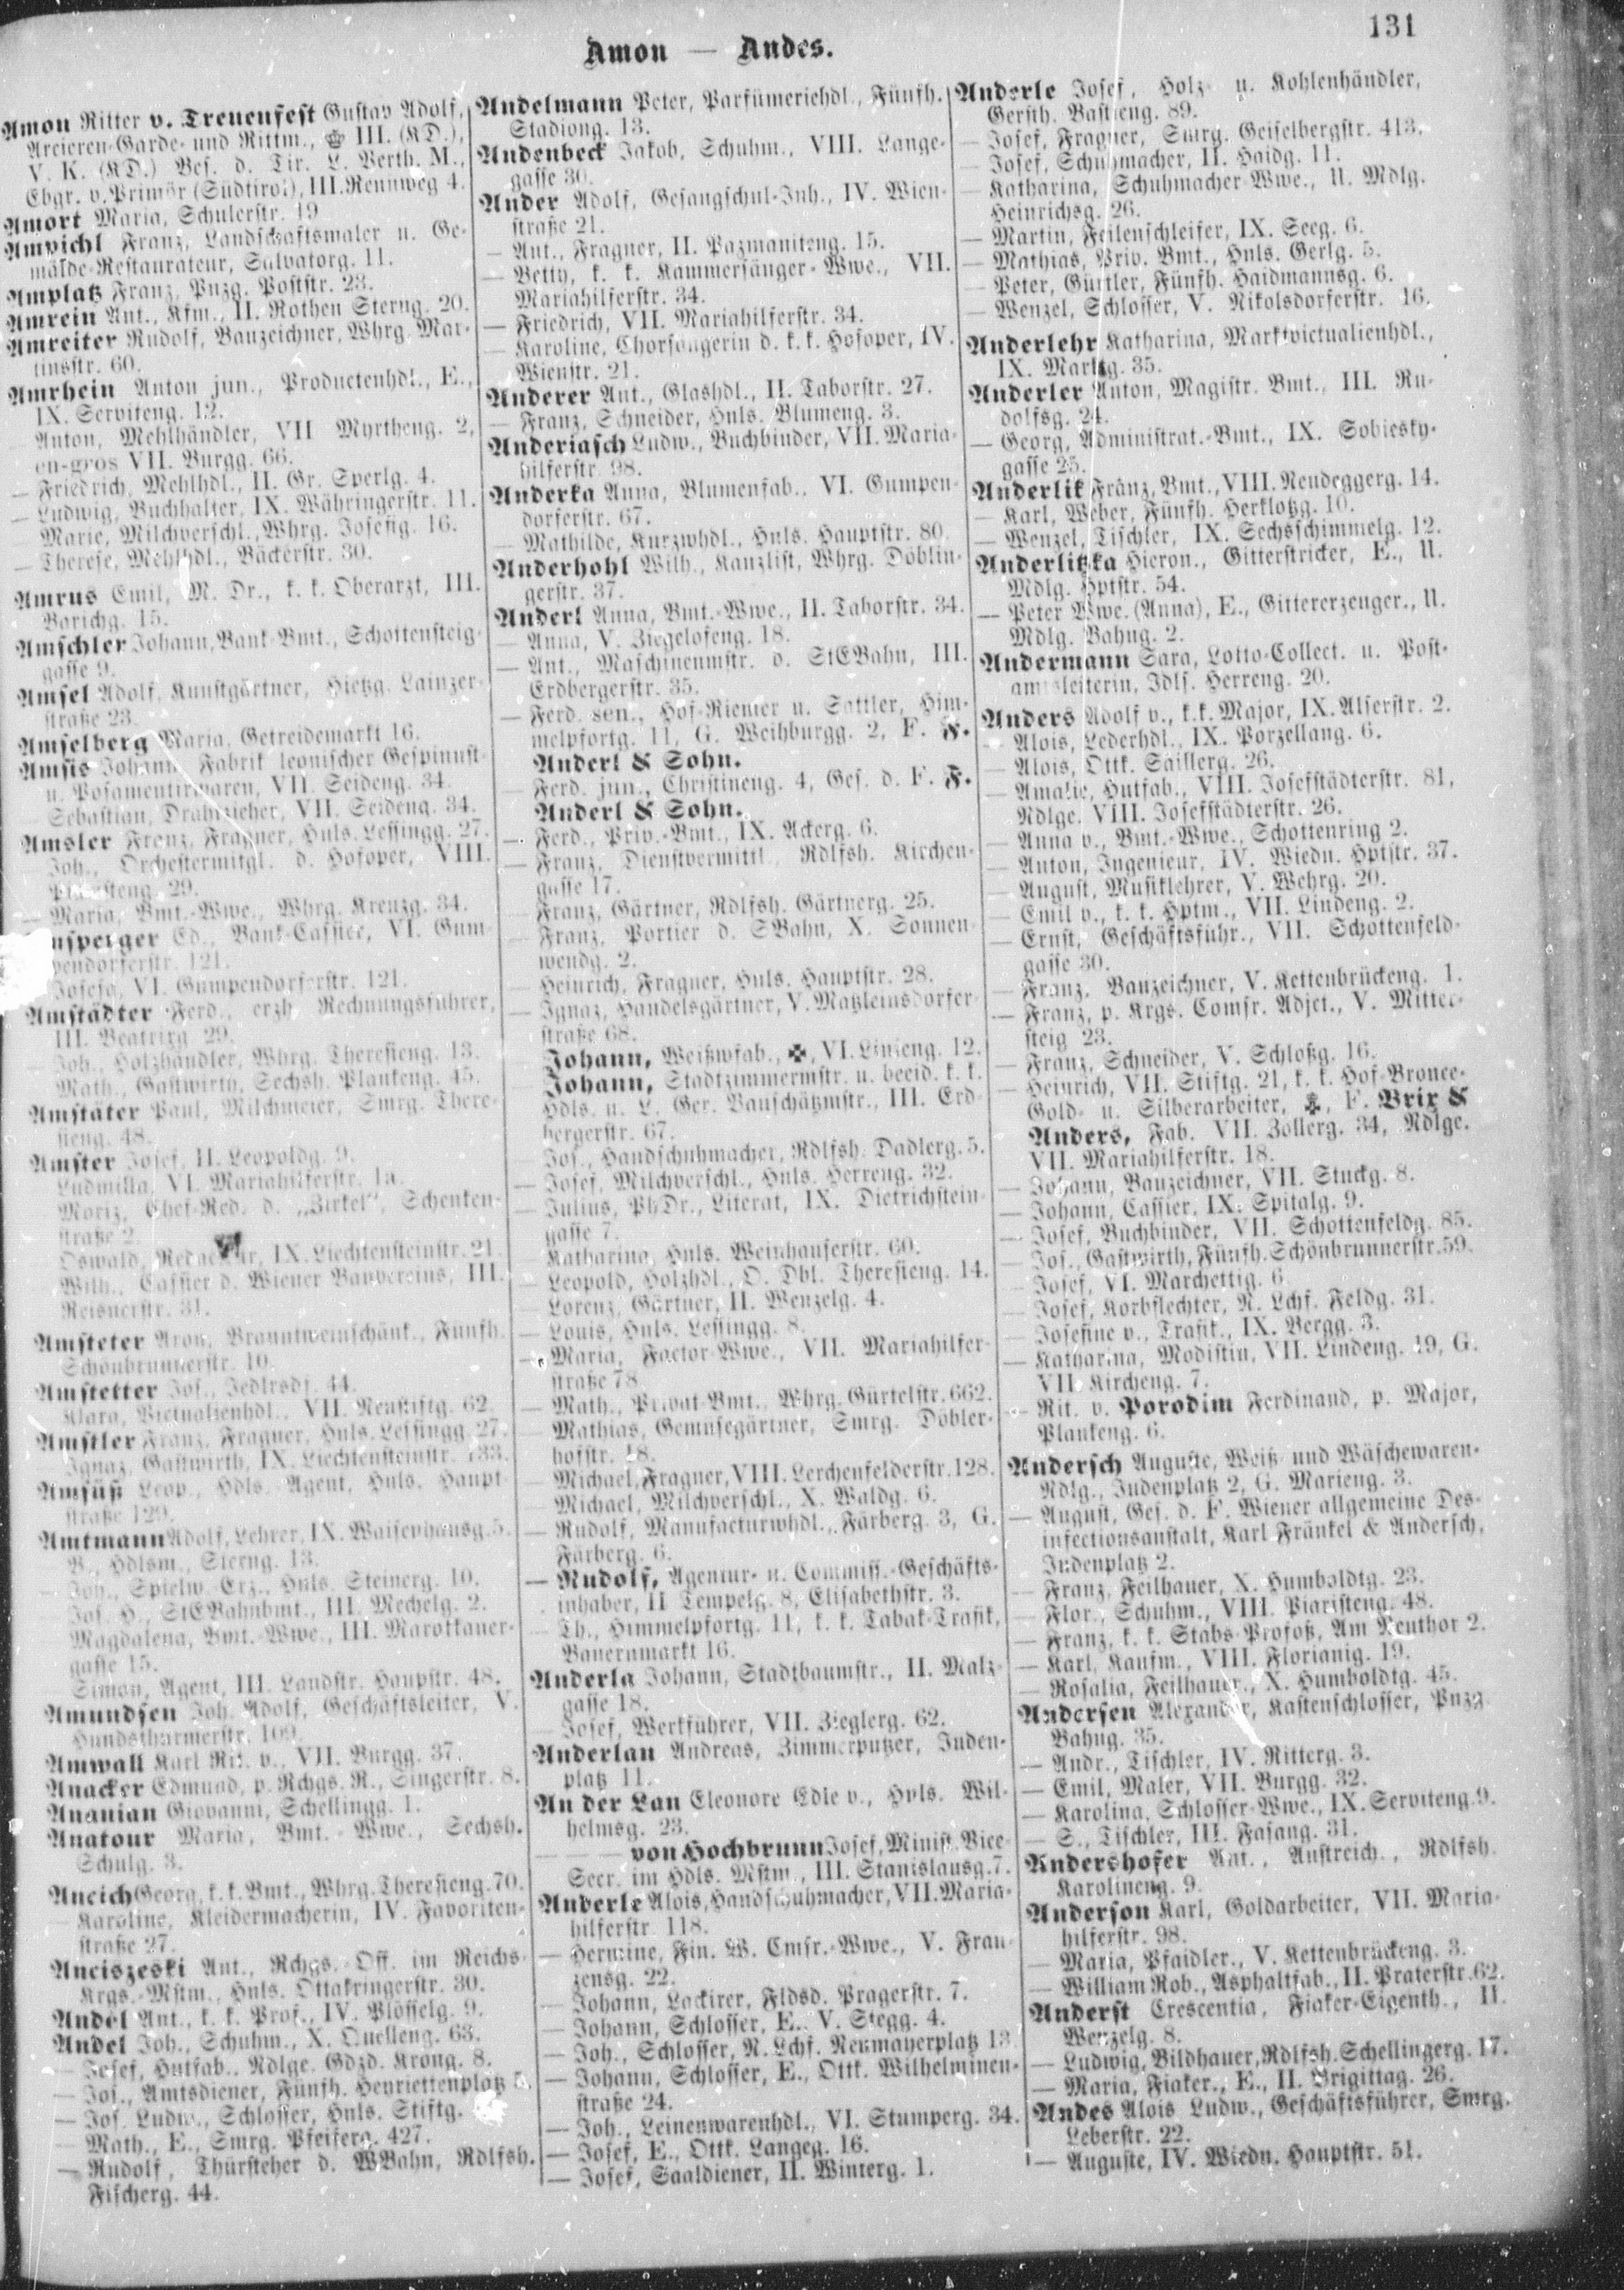 131
Amon — Andes.
Amon Ritter v. Treuenfest Gustav Adolf,
Arcieren-Garde- und Rittm., III. (KD.),
V. K. (KD.) Bes. d. Tir. L. Verth. M.,
Ehgr. v. Primör (Südtirol), III. Rennweg 4.
Amort Maria, Schulerstr. 19
Ampichl Franz, Landschaftsmaler u. Ge-
mälde-Restaurateur, Salvatorg. 11.
Amplatz Franz, Pnzg. Poststr. 23.
Amrein Ant., Kfm., II. Rothen Sterng. 20.
Amreiter Rudolf, Bauzeichner, Whrg. Mar-
tinsstr. 60.
Amrhein Anton jun., Productenhdl., E.,
IX. Serviteng. 12.
— Anton, Mehlhändler, VII Myrtheng. 2,
en-gros VII. Burgg. 66.
— Friedrich, Mehlhdl., II. Gr. Sperlg. 4.
— Ludwig, Buchhalter, IX. Währingerstr. 11.
— Marie, Milchverschl., Whrg. Josefig. 16.
— Therese, Mehlhdl., Bäckerstr. 30.
Amrus Emil, M. Dr., k. k. Oberarzt, III.
Barichg. 15.
Amschler Johann, Bank-Bmt., Schottensteig-
gasse 9.
Amsel Adolf, Kunstgärtner, Hietzg. Lainzer-
straße 23.
Amselberg Maria, Getreidemarkt 16.
Amsis Johann, Fabrik leonischer Gespinnst-
u. Posamentirwaren, VII. Seideng. 34.
— Sebastian, Drahtzieher, VII. Seideng. 34.
Amsler Franz, Fragner, Huls. Lessingg. 27.
— Joh., Orchestermitgl. d. Hofoper, VIII.
29.
— Maria, Bmt.-Wwe., Whrg. Kreuzg. 34.
Ed., Bank-Cassier, VI. Gum-
pendorferstr. 121.
Josefa, VI. Gumpendorferstr. 121.
Amstädter Ferd., erzh. Rechnungsführer,
III. Beatrixg. 29.
— Joh., Holzhändler, Whrg. Theresieng. 13.
— Math., Gastwirth, Sechsh. Plankeng. 45.
Amstäter Paul, Milchmeier, Smrg. There-
sieng. 48.
Amster Josef, II. Leopoldg. 9.
— Ludmilla, VI. Mariahilferstr. 1a.
— Moriz, Chef-Red. d. „Zirkel“, Schenken-
straße 2.
— Oswald, IX. Liechtensteinstr. 21.
— Wilh., Cassier d. Wiener Bauvereins, III.
Reisnerstr. 31.
Amsteter Aron, Branntweinschänk., Fünfh.
Schönbrunnerstr. 10.
Amstetter Jos., Jedlrsdf. 44.
— Klara, Victualienhdl., VII. Neustiftg. 62.
Amstler Franz, Fragner, Huls. Lessingg. 27.
— Ignaz, Gastwirth, IX. Liechtensteinstr. 133.
Amsüß Leop., Hdls.-Agent, Huls. Haupt-
straße 129.
Amtmann Adolf, Lehrer, IX. Waisenhausg. 5.
— B., Hdlsm., Sterng. 13.
— Joh., Spielw.-Erz., Huls. Steinerg. 10.
— Jos. H., StEBahnbmt., III. Mechelg. 2.
— Magdalena, Bmt.-Wwe., III. Marokkaner-
gasse 15.
— Simon, Agent, III. Landstr. Hauptstr. 48.
Amundsen Joh. Adolf, Geschäftsleiter, V.
Hundsthurmerstr. 109.
Amwall Karl Rit. v., VII. Burgg. 37.
Anacker Edmund, p. Rchgs. R., Singerstr. 8.
Ananian Giovanni, Schellingg. 1.
Anatour Maria, Bmt.-Wwe., Sechsh.
Schulg. 3.
Aneich Georg, k. k. Bmt., Whrg. Theresieng. 70.
— Karoline, Kleidermacherin, IV. Favoriten-
straße 27.
Anciszeski Ant., Rchgs.-Off. im Reichs-
Krgs.-Mstm., Huls. Ottakringerstr. 30.
Andél Ant., k. k. Prof., IV. Plösselg. 9.
Andel Joh., Schuhm., X. Quelleng. 63.
— Josef, Hutfab., Ndlge. Gdzd. Krong. 8.
— Jos., Amtsdiener, Fünfh. Henriettenplatz 5.
— Jos. Ludw., Schlosser, Huls. Stiftg.
— Math., E., Smrg. Pfeiferg. 427.
— Rudolf, Thürsteher d. WBahn, Rdlfsh.
Fischerg. 44.
Andelmann Peter, Parfümeriehdl., Fünfh.
Stadiong. 13.
Andenbeck Jakob, Schuhm., VIII. Lange-
gasse 30.
Ander Adolf, Gesangschul-Inh., IV. Wien-
straße 21.
— Ant., Fragner, II. Pazmaniteng. 15.
— Betty, k. k. Kammersänger-Wwe., VII.
Mariahilferstr. 34.
— Friedrich, VII. Mariahilferstr. 34.
— Karoline, Chorsängerin d. k. k. Hofoper, IV.
Wienstr. 21.
Anderer Ant., Glashdl., II. Taborstr. 27.
— Franz, Schneider, Huls. Blumeng. 3.
Anderiasch Ludw., Buchbinder, VII. Maria-
hilferstr. 98.
Anderka Anna, Blumenfab., VI. Gumpen-
dorferstr. 67.
— Mathilde, Kurzwhdl., Huls. Hauptstr. 80.
Anderhohl Wilh., Kanzlist, Whrg. Döblin-
gerstr. 37.
Anderl Anna, Bmt.-Wwe., II. Taborstr. 34.
— Anna, V. Ziegelofeng. 18.
— Ant., Maschinenmstr. d. StEBahn, III.
Erdbergerstr. 35.
— Ferd. sen., Hof-Riemer u. Sattler, Him-
melpfortg. 11, G. Weihburgg. 2, F. F.
Anderl & Sohn.
— Ferd. jun., Christineng. 4, Ges. d. F. F.
Anderl & Sohn.
— Ferd., Priv.-Bmt., IX. Ackerg. 6.
— Franz, Dienstvermittl., Rdlfsh. Kirchen-
gasse 17.
— Franz, Gärtner, Rdlfsh. Gärtnerg. 25.
— Franz, Portier d. SBahn, X. Sonnen-
wendg. 2.
— Heinrich, Fragner, Huls. Hauptstr. 28.
— Ignaz, Handelsgärtner, V. Matzleinsdorfer-
straße 68.
Johann, Weißwfab., VI. Linieng. 12.
Johann, Stadtzimmermstr. u. beeid. k. k.
Hdls. u. L. Ger. Bauschätzmstr., III. Erd-
bergerstr. 67.
Jos., Handschuhmacher, Rdlfsh. Dadlerg. 5.
— Josef, Milchverschl., Huls. Herreng. 32.
— Julius, PhDr., Literat, IX. Dietrichstein-
gasse 7.
— Katharina, Huls. Weinhauserstr. 60.
— Leopold, Holzhdl., O. Dbl. Theresieng. 14.
— Lorenz, Gärtner, II. Wenzelg. 4.
— Louis, Huls. Lessingg. 8.
— Maria, Factor-Wwe., VII. Mariahilfer-
straße 78.
— Math., Privat-Bmt., Whrg. Gürtelstr. 662.
— Mathias, Gemüsegärtner, Smrg. Döbler-
hofstr. 18.
— Michael, Fragner, VIII. Lerchenfelderstr. 128.
— Michael, Milchverschl., X. Waldg. 6.
— Rudolf, Manufacturwhdl., Färberg. 3, G.
Färberg. 6.
— Rudolf, Agentur- u. Commiss.-Geschäfts-
inhaber, II Tempelg. 8, Elisabethstr. 3.
— Th., Himmelpfortg. 11, k. k. Tabak-Trafik,
Bauernmarkt 16.
Anderla Johann, Stadtbaumstr., II. Malz-
gasse 18.
— Josef, Werkführer, VII. Zieglerg. 62.
Anderlan Andreas, Zimmerputzer, Juden-
platz 11.
An der Lan Eleonore Edle v., Huls. Wil-
helmsg. 23.
— — — von Hochbrunn Josef, Minist. Vice-
Secr. im Hdls. Mstm., III. Stanislausg. 7.
Anderle Alois, Handschuhmacher, VII. Maria-
hilferstr. 118.
— Hermine, Fin. W. Cmsr.-Wwe., V. Fran-
zensg. 22.
— Johann, Lackirer, Fldsd. Pragerstr. 7.
— Johann, Schlosser, E., V. Stegg. 4.
— Joh., Schlosser, N. Lchf. Neumayerplatz 13.
— Johann, Schlosser, E., Ottk. Wilhelminen-
straße 24.
— Joh., Leinenwarenhdl., VI. Stumperg. 34.
— Josef, E., Ottk. Langeg. 16.
— Josef, Saaldiener, II. Winterg. 1.
Anderle Josef, Holz- u. Kohlenhändler,
Gersth. Bastieng. 89.
— Josef, Fragner, Smrg. Geiselbergstr. 413.
— Josef, Schuhmacher, II. Haidg. 11.
— Katharina, Schuhmacher-Wwe., U. Mdlg.
Heinrichsg. 26.
— Martin, Feilenschleifer, IX. Seeg. 6.
— Mathias, Priv. Bmt., Huls. Gerlg. 5.
— Peter, Gürtler, Fünfh. Haidmannsg. 6.
— Wenzel, Schlosser, V. Nikolsdorferstr. 16.
Anderlehr Katharina, Marktvictualienhdl.,
IX. Marktg. 35.
Anderler Anton, Magistr. Bmt., III. Ru-
dolfsg. 24.
— Georg, Administrat.-Bmt., IX. Sobiesky-
gasse 25.
Anderlik Franz, Bmt., VIII. Neudeggerg. 14.
— Karl, Weber, Fünfh. Herklotzg. 10.
— Wenzel, Tischler, IX. Sechsschimmelg. 12.
Anderlitzka Hieron., Gitterstricker, E., U.
Mdlg. Hptstr. 54.
— Peter Wwe. (Anna), E., Gittererzeuger., U.
Mdlg. Bahng. 2.
Andermann Sara, Lotto-Collect. u. Post-
amtsleiterin, Jdls. Herreng. 20.
Anders Adolf v., k.k. Major, IX. Alserstr. 2.
— Alois, Lederhdl., IX. Porzellang. 6.
— Alois, Ottk. Saillerg. 26.
— Amalie, Hutfab., VIII. Josefstädterstr. 81,
Ndlge. VIII. Josefstädterstr. 26.
— Anna v., Bmt.-Wwe., Schottenring 2.
— Anton, Ingenieur, IV. Wiedn. Hptstr. 37.
— August, Musiklehrer, V. Wehrg. 20.
— Emil v., k. k. Hptm., VII. Lindeng. 2.
— Ernst, Geschäftsführ., VII. Schottenfeld-
gasse 30.
— Franz, Bauzeichner, V. Kettenbrückeng. 1.
— Franz, p. Krgs. Comsr. Adjct., V. Mitter-
steig 23.
— Franz, Schneider, V. Schloßg. 16.
— Heinrich, VII. Stiftg. 21, k. k. Hof-Bronce-
Gold- u. Silberarbeiter, F. Brix &
Anders, Fab. VII. Zollerg. 34, Ndlge.
VII. Mariahilferstr. 18.
— Johann, Bauzeichner, VII. Stuckg. 8.
— Johann, Cassier, IX. Spitalg. 9.
— Josef, Buchbinder, VII. Schottenfeldg. 85.
— Jos., Gastwirth, Fünfh. Schönbrunnerstr. 59.
— Josef, VI. Marchettig. 6.
— Josef, Korbflechter, N. Lchf. Feldg. 31.
— Josefine v., Trafik., IX. Bergg. 3.
— Katharina, Modistin, VII. Lindeng. 19, G.
VII. Kircheng. 7.
— Rit. v. Porodim Ferdinand, p. Major,
Plankeng. 6.
Andersch Auguste, Weiß- und Wäschewaren-
Ndlg., Judenplatz 2, G. Marieng. 3.
— August, Ges. d. F. Wiener allgemeine Des-
infectionsanstalt, Karl Fränkel & Andersch,
Judenplatz 2.
— Franz, Feilhauer, X. Humboldtg. 23.
— Flor., Schuhm., VIII. Piaristeng. 48.
— Franz, k. k. Stabs-Profoß, Am Neuthor 2.
— Karl, Kaufm., VIII. Florianig. 19.
— Rosalia, Feilhauer., X. Humboldtg. 45.
Andersen Alexander, Kastenschlosser, Pnzg.
Bahng. 35.
— Andr., Tischler, IV. Ritterg. 3.
— Emil, Maler, VII. Burgg. 32.
— Karolina, Schlosser-Wwe., IX. Serviteng. 9.
— S., Tischler, III. Fasang. 31.
Andershofer Ant., Anstreich., Rdlfsh.
Karolineng. 9.
Anderson Karl, Goldarbeiter, VII. Maria-
hilferstr. 98.
— Maria, Pfaidler., V. Kettenbrückeng. 3.
— William Rob., Asphaltfab., II. Praterstr. 62.
Anderst Crescentia, Fiaker-Eigenth., II.
Wenzelg. 8.
— Ludwig, Bildhauer, Rdlfsh. Schellingerg. 17.
— Maria, Fiaker., E., II. Brigittag. 26.
Andes Alois Ludw., Geschäftsführer, Smrg.
Leberstr. 22.
— Auguste, IV. Wiedn. Hauptstr. 51.